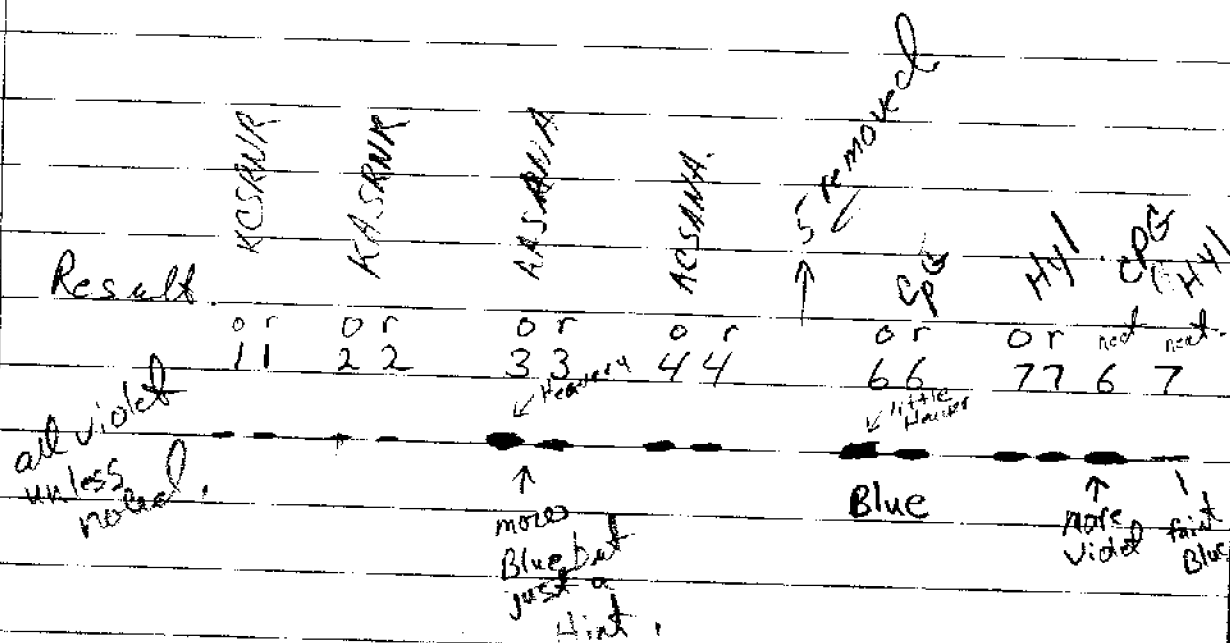 KCSRNR KASRNR AASRNA ACSANA. 5 removed
CpG Hyl CpG Hyl
Result.
o r o r o r o r o r o r neat neat.
1 1 2 2 3 3 4 4 6 6 7 7 6 7
Heavery little Heavier
all violet
unless
noted.
more
Blue but
just a
Hint.
Blue
more
violet
faint
Blue